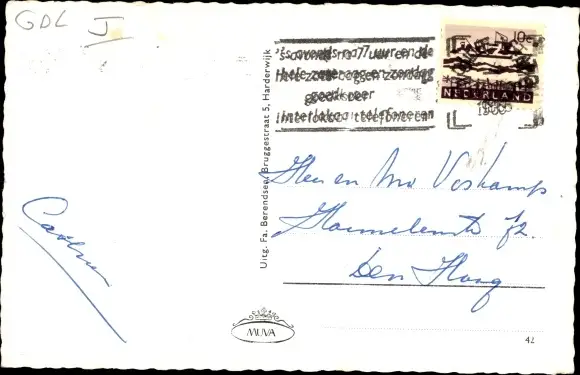 GDL J
's avonds na 7 uur en de
hele zaterdag en zondag
goedkoper
interlokaal telefoneren
10c
NEDERLAND
Uitg. Fa. Berendsen, Bruggestraat 5, Harderwijk
Heer en Mw Voskamp.
72.
Den Haag
MUVA
42